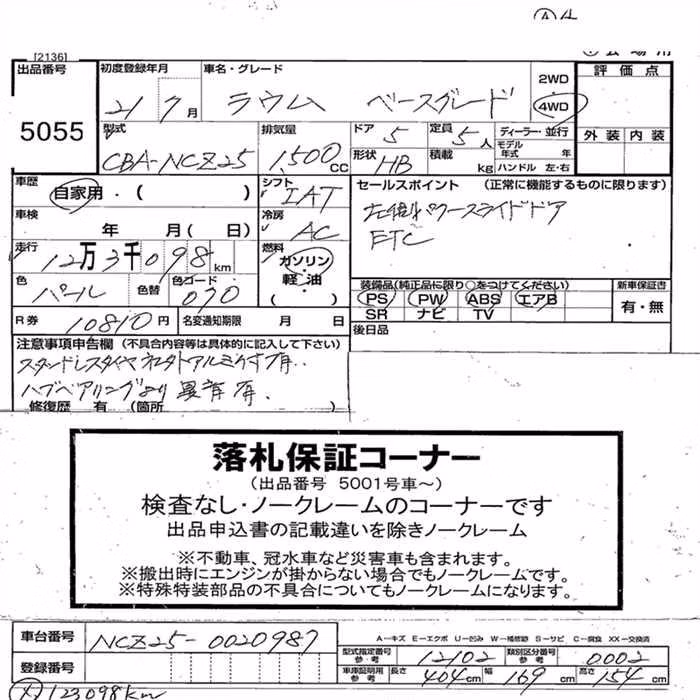 [2136]
出品番号 初度登録年月 車名・グレード 2WD 評価点
5055 21 7月 ラウム ベースグレード 4WD
型式 排気量 ドア 定員 ディーラー・並行 外装 内装
CBA-NCZ25 1,500CC 5 5人 モデル年式 年
形状 HB 積載 kg ハンドル 左・右
車歴 自家用・( ) シフト IAT セールスポイント (正常に機能するものに限ります)
車検 年 月( 日) 冷房 AC パワースライドドア
ETC
走行 12万3千098km 燃料 ガソリン 軽油 ( )
色 パール 色替 色コード 070 装備品(純正品に限り○をつけてください) 新車保証書
PS PW ABS エアB 有・無
SR ナビ TV
R券 10810円 名変通知期限 月 日 後日品
注意事項申告欄 (不具合内容等は具体的に記入して下さい)
スタンドレスタイヤ アルミ 有
ハブベアリングより 異音 有.
修復歴 有 (箇所 )
落札保証コーナー
(出品番号 5001号車~)
検査なし・ノークレームのコーナーです
出品申込書の記載違いを除きノークレーム
※不動車、冠水車など災害車も含まれます。
※搬出時にエンジンが掛からない場合でもノークレームです。
※特殊特装部品の不具合についてもノークレームになります。
車台番号 NCZ25-0020987 A-キズ E-エクボ U-凹み W-補修跡 S-サビ C-腐食 XX-交換済
登録番号 型式指定番号 参考 12102 類別区分番号 参考 0002
車庫証明用 参考 長さ 404cm 幅 169cm 高さ 154cm
123098km